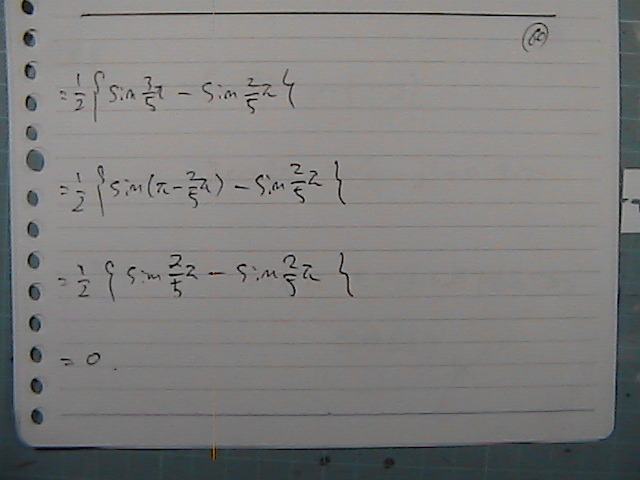 = 1/2 { sin 3/5 π − sin 2/5 π }
= 1/2 { sin(π − 2/5 π) − sin 2/5 π }
= 1/2 { sin 2/5 π − sin 2/5 π }
= 0.